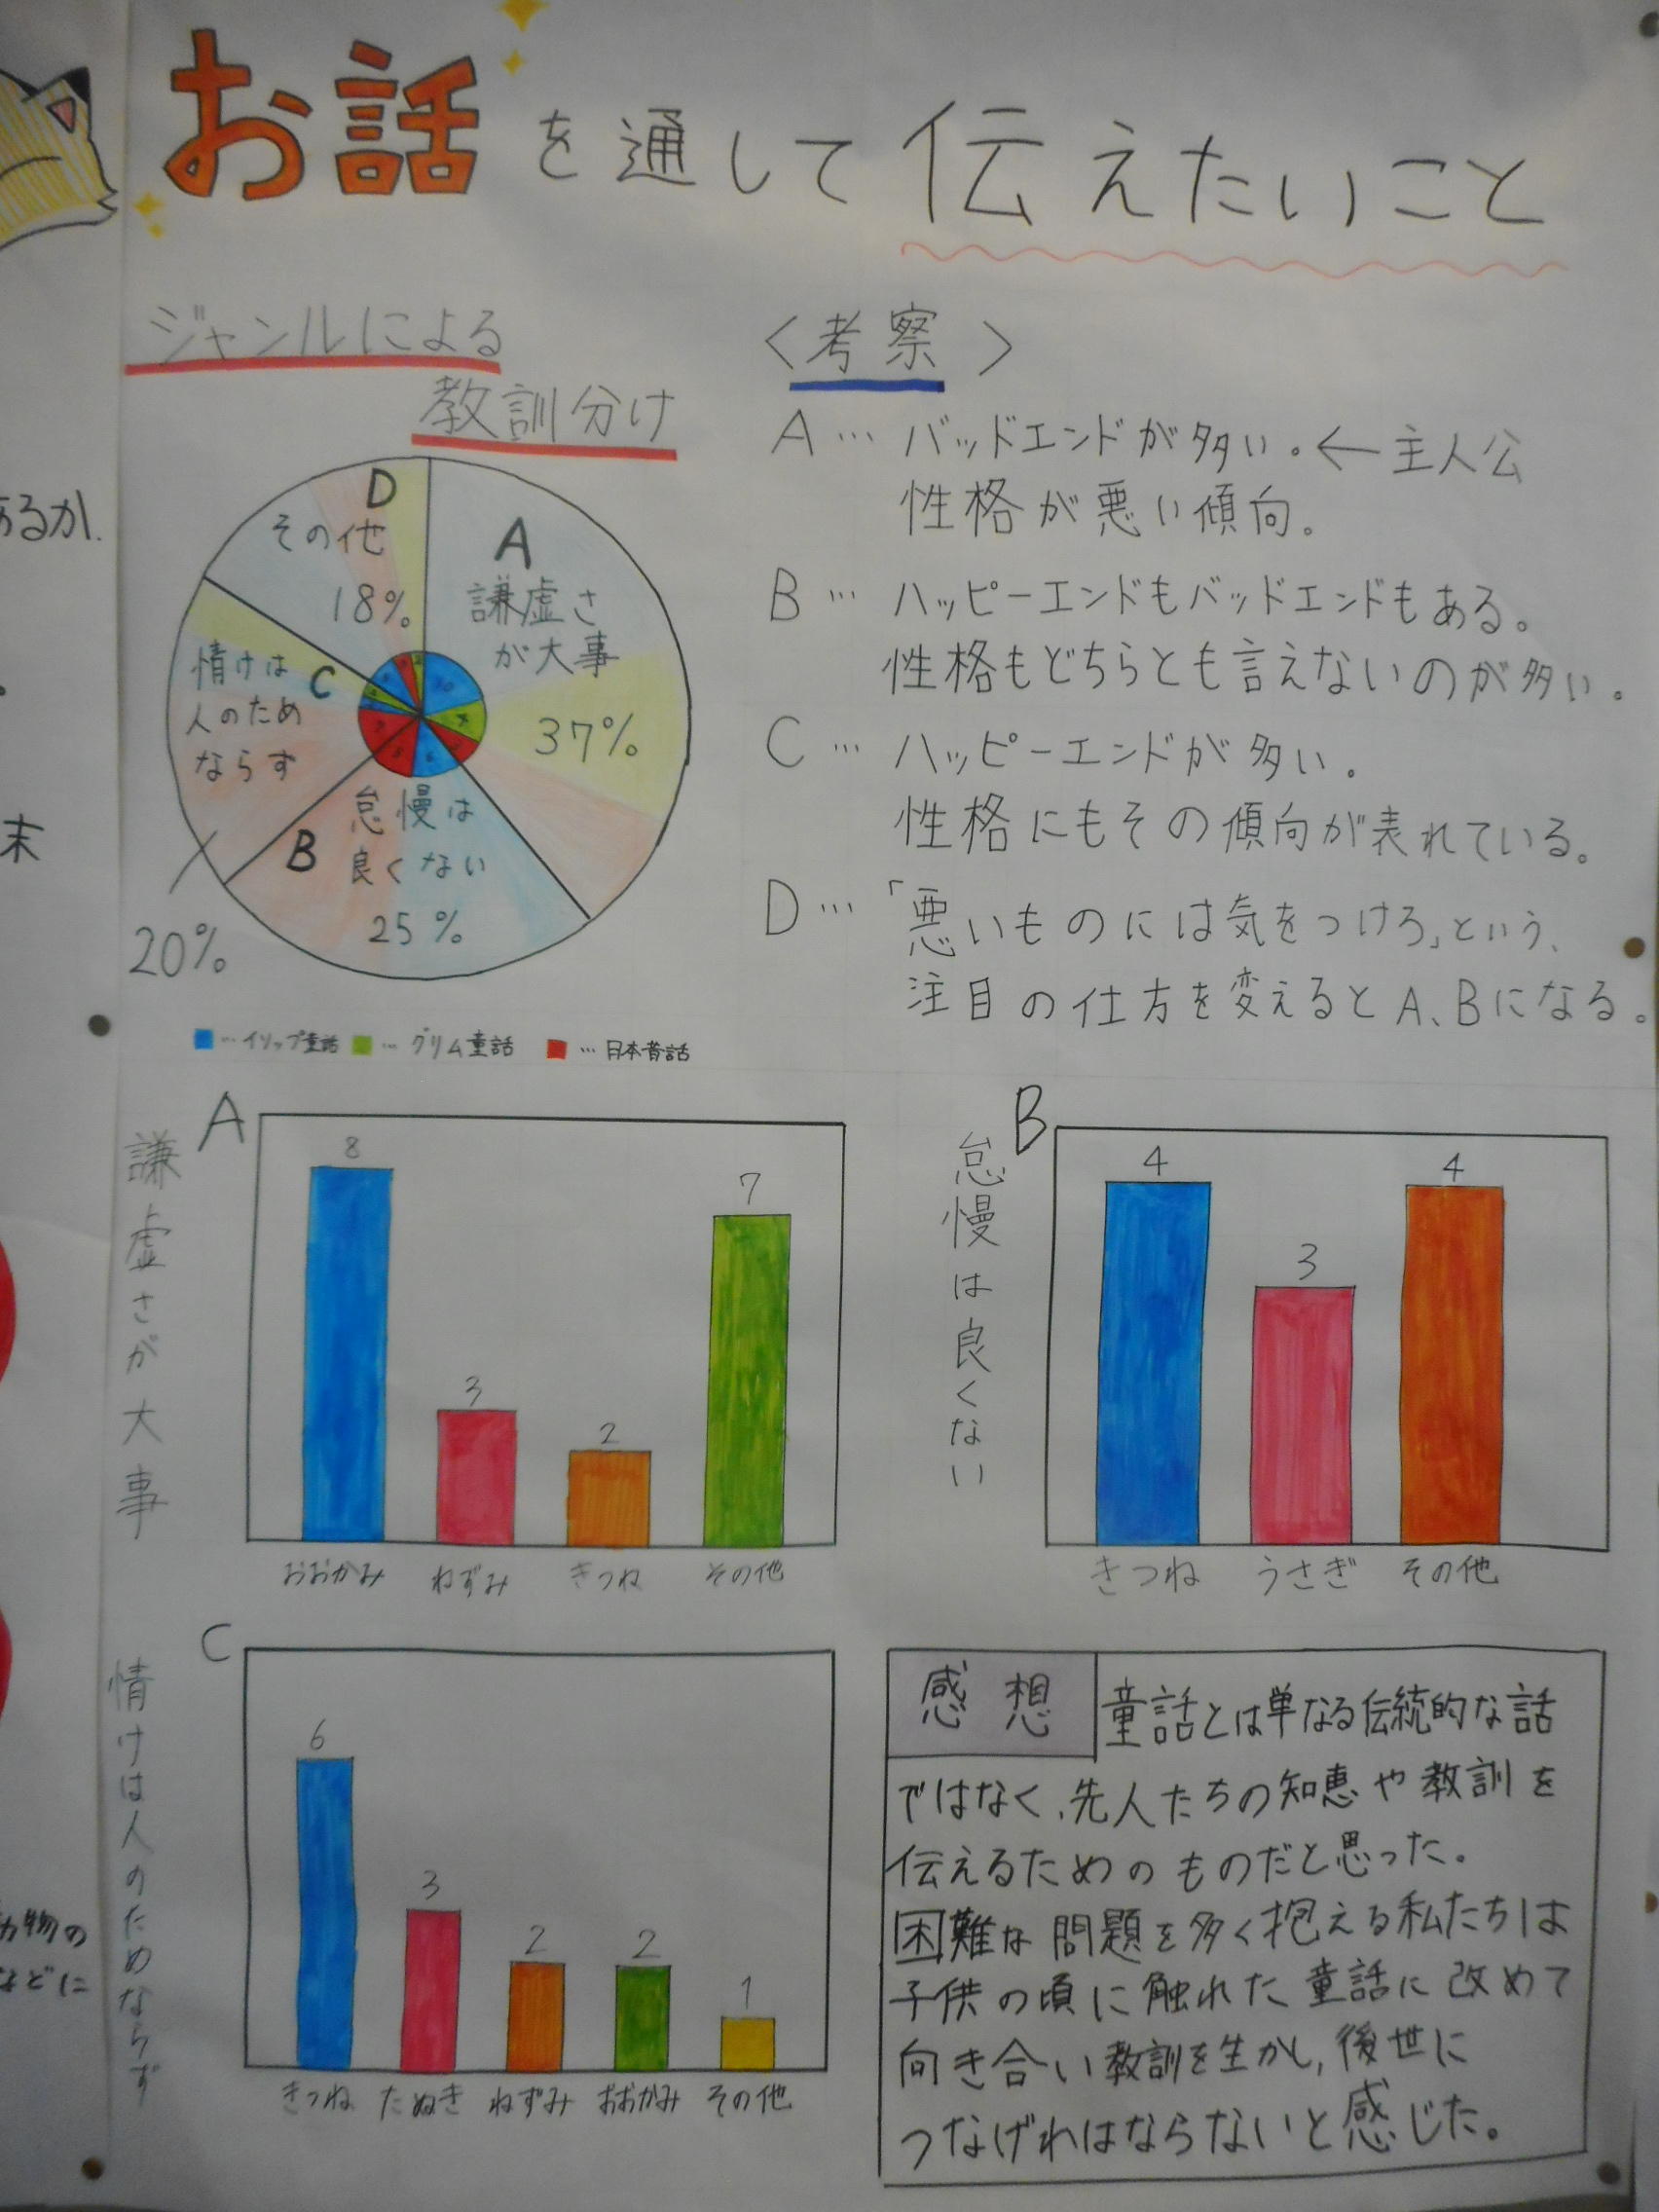 お話を通して伝えたいこと
ジャンルによる
教訓分け
D
その他
18%
A
謙虚さ
が大事
37%
情けは
C
人のため
ならず
20%
怠慢は
B
良くない
25%
…イソップ童話 … グリム童話 … 日本昔話
〈考察〉
A … バッドエンドが多い。← 主人公
性格が悪い傾向。
B … ハッピーエンドもバッドエンドもある。
性格もどちらとも言えないのが多い。
C … ハッピーエンドが多い。
性格にもその傾向が表れている。
D … 「悪いものには気をつけろ」という、
注目の仕方を変えるとA、Bになる。
A
謙虚さが大事
8
3
2
7
おおかみ ねずみ きつね その他
B
怠慢は良くない
4
3
4
きつね うさぎ その他
C
情けは人のためならず
6
3
2
2
1
きつね たぬき ねずみ おおかみ その他
感想
童話とは単なる伝統的な話
ではなく、先人たちの知恵や教訓を
伝えるためのものだと思った。
困難な問題を多く抱える私たちは
子供の頃に触れた童話に改めて
向き合い教訓を生かし、後世に
つなげればならないと感じた。
あるか.
末
などに